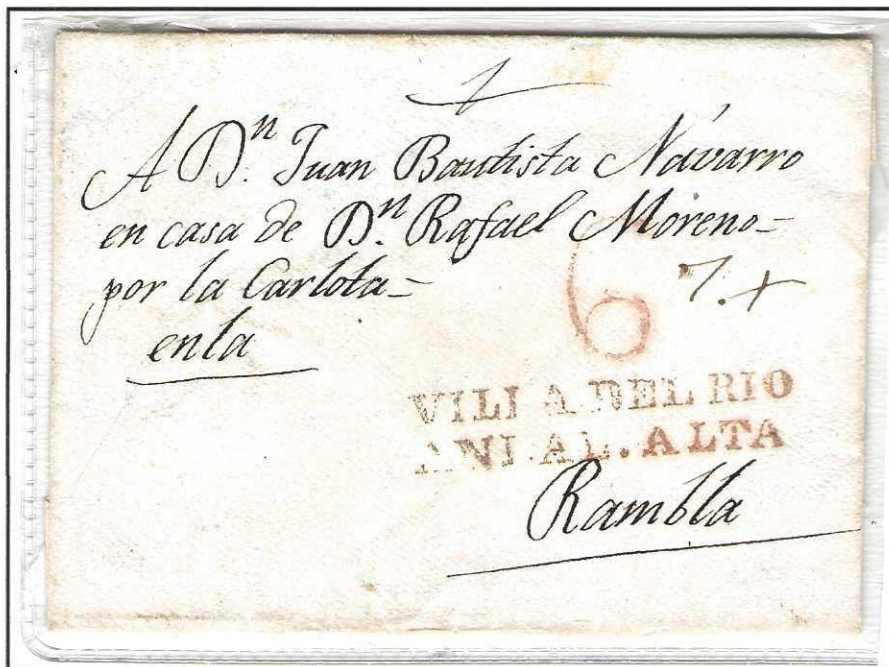 A Dn. Juan Bautista Navarro
en casa de Dn. Rafael Moreno=
por la Carlota=
en la
6
7.
VILLA DEL RIO
ANDAL. ALTA
Rambla